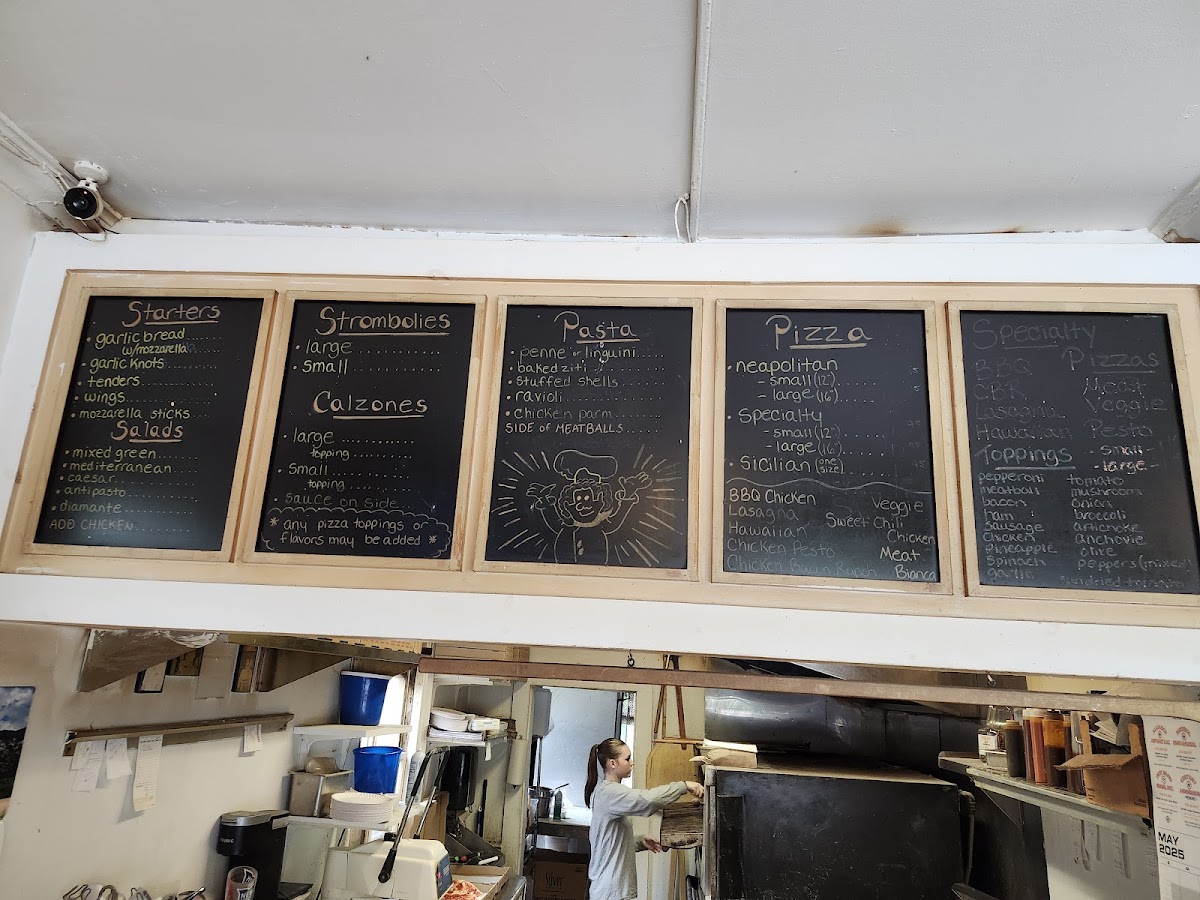 Starters
garlic bread
w/mozzarella
garlic knots
tenders
wings
mozzarella sticks
Salads
mixed green
mediterranean
caesar
antipasto
diamante
ADD CHICKEN
Strombolies
large
small
Calzones
large
topping
small
topping
sauce on side
* any pizza toppings or
flavors may be added *
Pasta
penne or linguini
baked ziti
stuffed shells
ravioli
chicken parm
SIDE OF MEATBALLS
Pizza
neapolitan
- small (12")
- large (16")
specialty
- small (12")
- large (16")
sicilian (one size)
BBQ Chicken
Veggie
Lasagna
Sweet Chili Chicken
Hawaiian
Chicken Pesto
Meat
Chicken Bacon Ranch
Bianca
Specialty
Pizzas
BBQ
Meat
CBR
Veggie
Lasagna
Pesto
Hawaiian
Toppings
- small -
- large -
pepperoni
tomato
meatball
mushroom
bacon
onion
ham
broccoli
sausage
artichoke
chicken
anchovie
pineapple
olive
spinach
peppers (mixed)
garlic
sundried tomato
MAY
2025